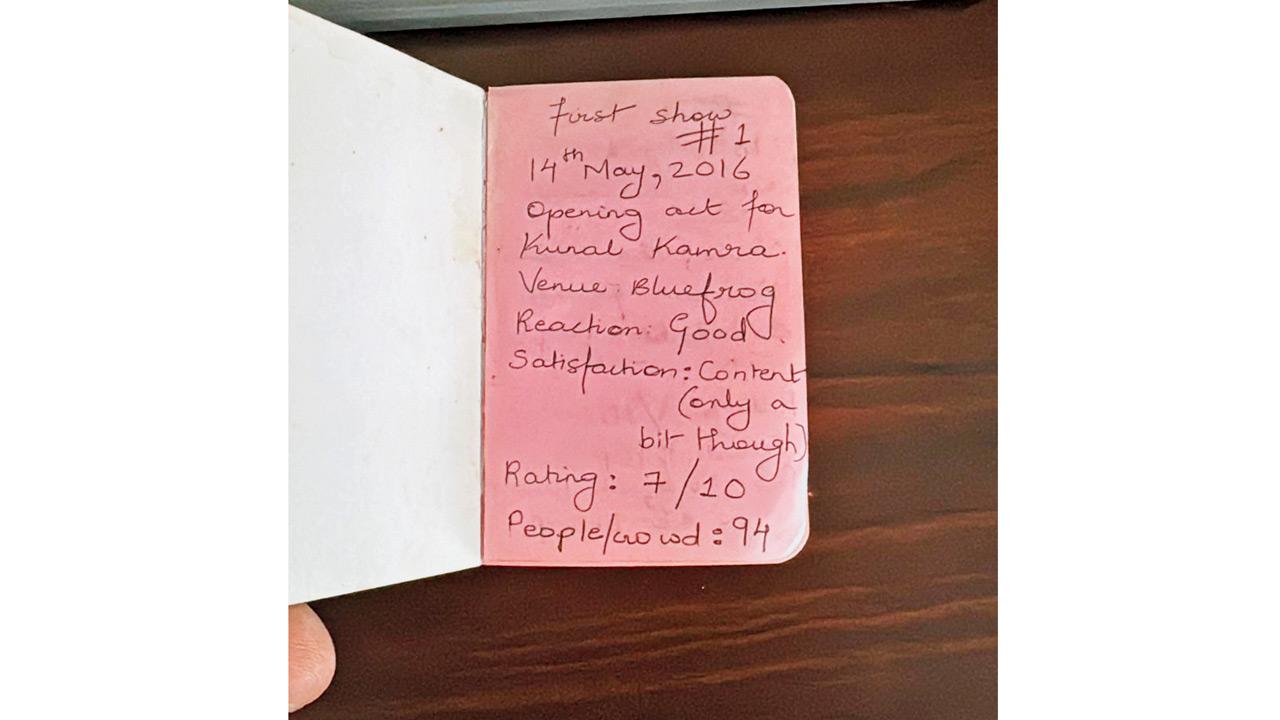 First show
# 1
14th May, 2016
Opening act for
Kunal Kamra.
Venue: Bluefrog
Reaction: Good.
Satisfaction: Content
(only a
bit though)
Rating: 7/10
People/crowd: 94